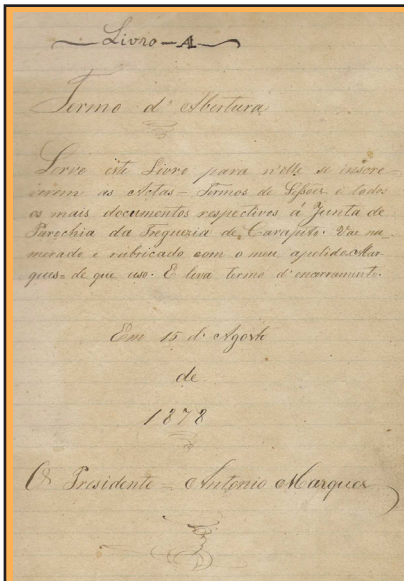 Livro - A
Termo d'Abertura
Serve este Livro para n'elle se inscre-
verem as Actas - Termos de Sessões e todos
os mais documentos respectivos á Junta de
Parochia da Freguezia de Carapito. Vai nu-
merado e rubricado com o meu apelido = Mar-
ques = de que uso. E leva termo d'encerramento.
Em 15 d'Agosto
de
1878
O Presidente = Antonio Marques